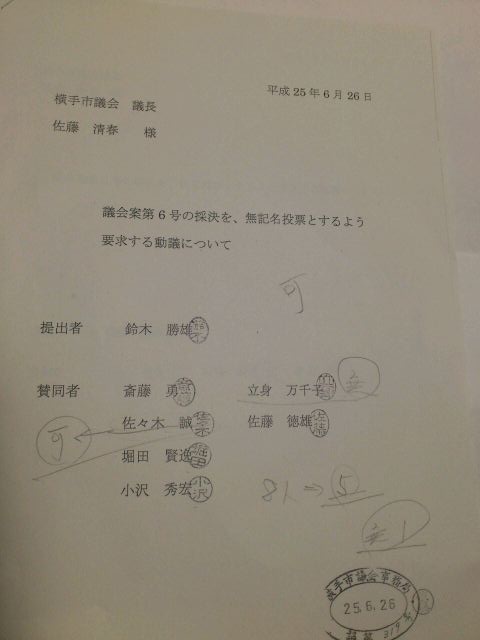 平成25年6月26日
横手市議会 議長
佐藤 清春 様
議会案第6号の採決を、無記名投票とするよう
要求する動議について
可
提出者 鈴木 勝雄 鈴木
賛同者 斎藤 勇 立身 万千子
可 佐々木 誠 佐藤 徳雄 佐藤
堀田 賢逸 堀田
小沢 秀宏 小沢
8人⇒⑤
横手市議会事務局
25.6.26